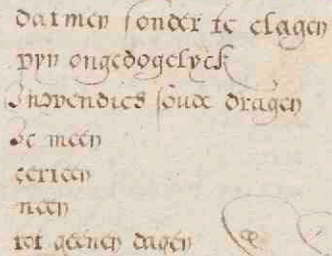 datmen sonder te clagen
pyn ongedogelyck
Inwendich soude dragen
Ic meen
certeen
neen
tot geenen dagen